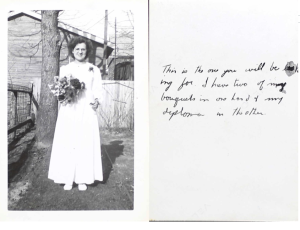 This is the one you will be
ing for I have two of my
bouquets in one hand & my
diploma in the other